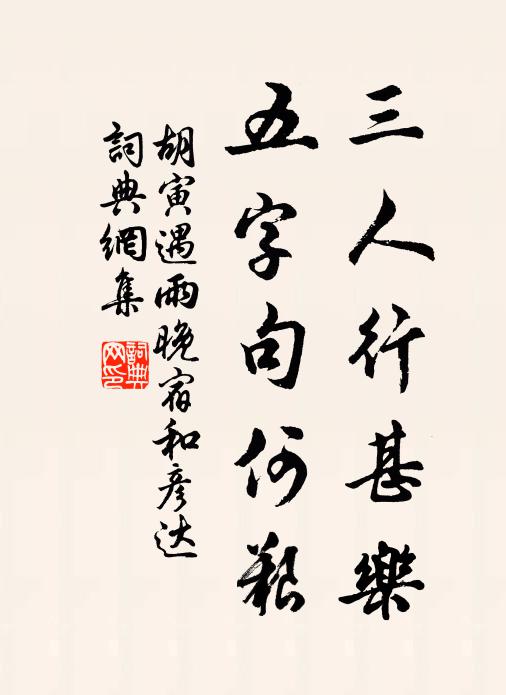 三人行甚樂
五字句何艱
胡寅遇雨晚宿和彥达
詞典網集
詞典
网印